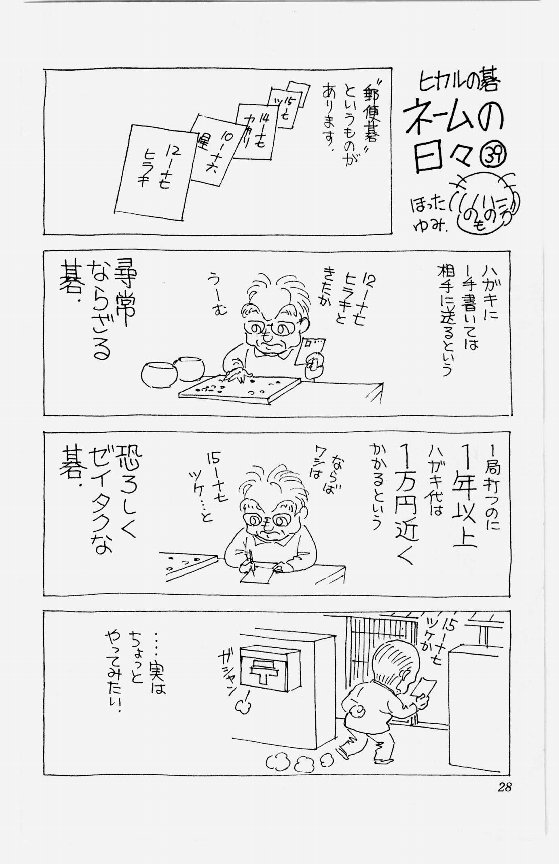 ヒカルの碁
ネームの
日々㊴
ほった
ゆみ.
"郵便碁"
というものが
あります.
15一十七
ツ
14一十七
カカリ
10一十六
星
12一十七
ヒラキ
ハガキに
一手書いては
相手に送るという
12一十七
ヒラキと
きたか
うーむ
尋常
ならざる
碁.
1局打つのに
1年以上
ハガキ代は
1万円近く
かかるという
ならば
ワシは
15一十七
ツケ…と
恐ろしく
ゼイタクな
碁.
15一十七
ツケか
ガシャン
……実は
ちょっと
やってみたい.
28